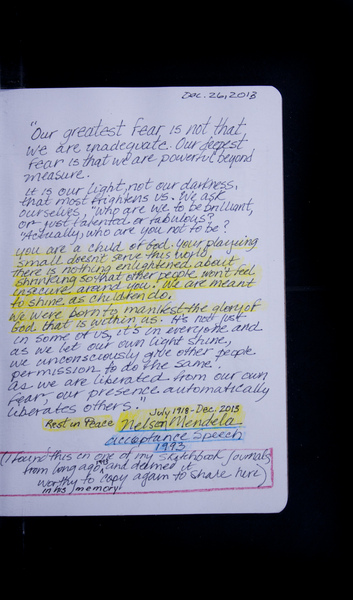 Dec. 26, 2013
"Our greatest fear is not that
we are inadequate. Our deepest
fear is that we are powerful beyond
measure.
It is our light, not our darkness,
that most frightens us. We ask
ourselves, "who are we to be brilliant,
or just talented or fabulous?
"Actually, who are you not to be?
you are a child of God. Your playing
small doesn't serve this world,
there is nothing enlightened about
shrinking so that other people won't feel
insecure around you. We are meant
to shine as children do.
We were born to manifest the glory of
God that is within us. It's not just
in some of us, it's in everyone and
as we let our own light shine,
we unconsciously give other people
permission to do the same.
as we are liberated from our own
fear, our presence automatically
liberates others."
July 1918 - Dec. 2013
Rest in Peace Nelson Mendela
acceptance Speech
1993
(I found this in one of my sketchbook journals
from long ago and deemed it
worthy to copy again to share here)
in his memory